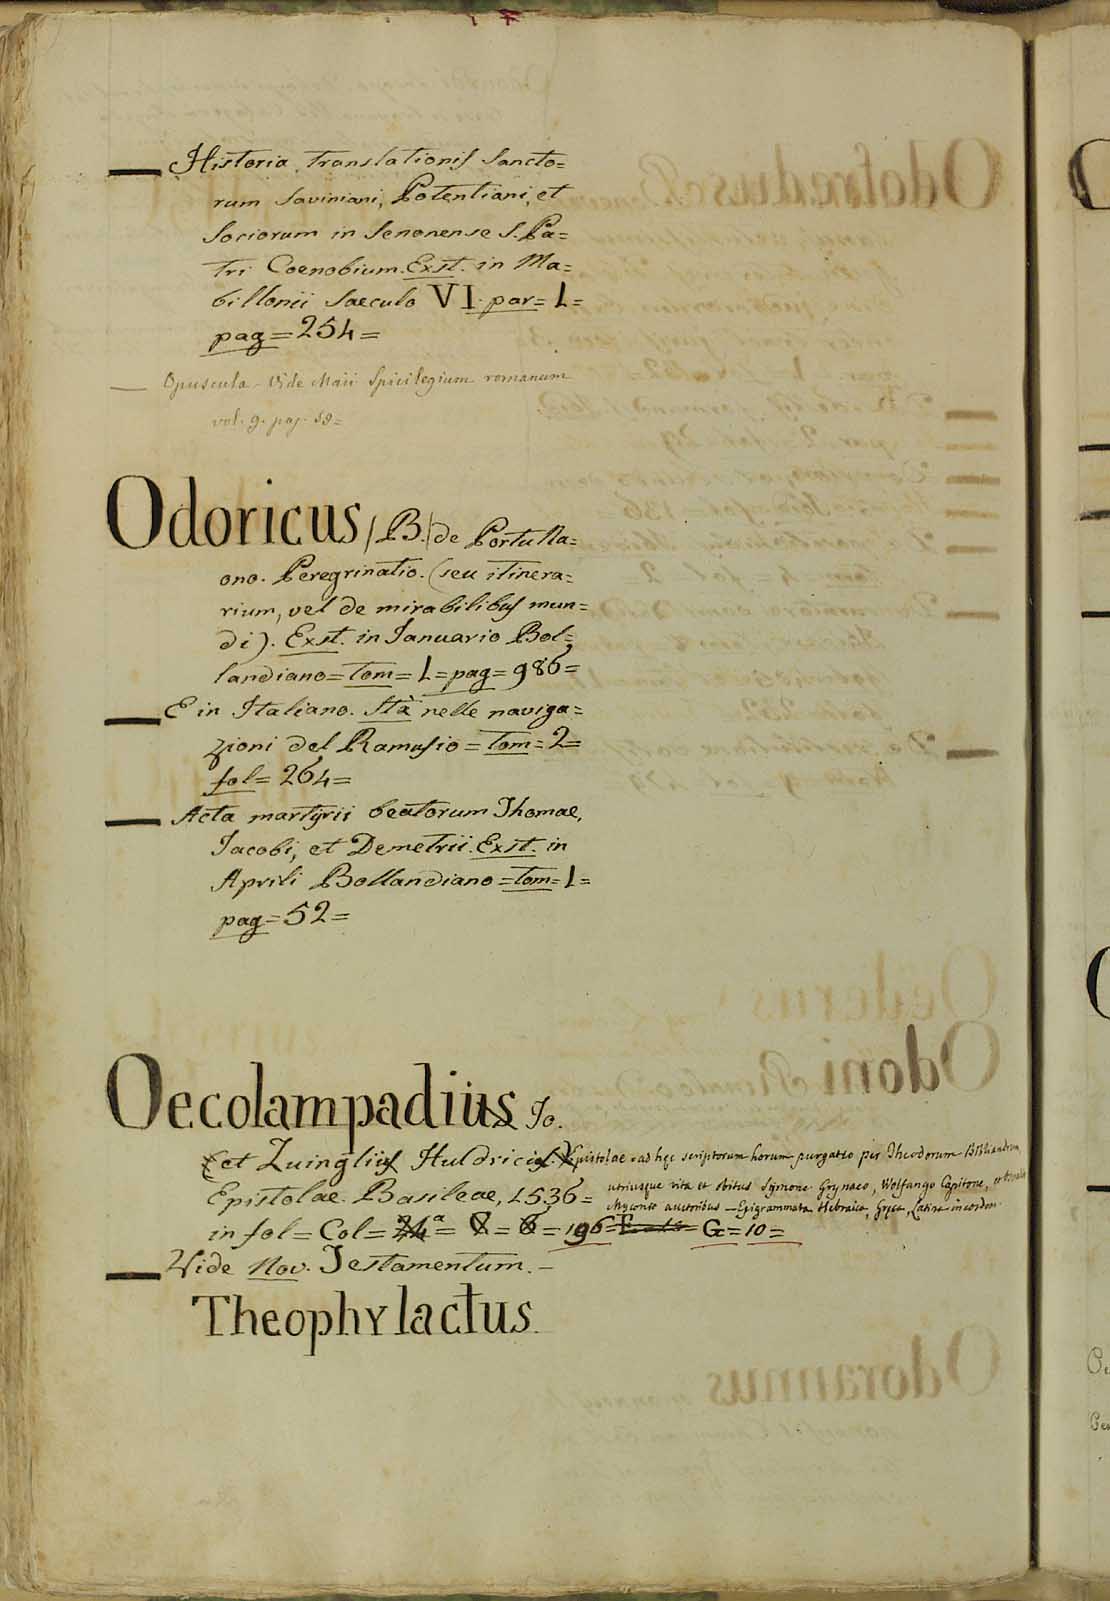 — Historia translationis Sancto=
rum Saviniani, Potentiani, et
Sociorum in Senonense S. Pe=
tri Coenobium. Exst. in Ma=
billonii Saeculo VI. par= 1=
pag= 254=
— Opuscula - Vide Maii Spicilegium romanum
vol. 9. pag. 59=
Odoricus (B.) de Portu Na=
ono. Peregrinatio. (seu itinera=
rium, vel de mirabilibus mun=
di). Exst. in Ianuario Bol=
landiano= tom= 1= pag= 986=
— E in Italiano. Stà nelle naviga=
zioni del Ramusio= tom= 2=
fol= 264=
— Acta martyrii beatorum Thomae,
Iacobi, et Demetrii. Exst. in
Aprili Bollandiano= tom= 1=
pag= 52=
Oecolampadius Io.
(et Zuinglius Huldricus.) Epistolae - ad hęc scriptorum horum purgatio per Theodorum Bibliandrum
utriusque vita et obitus Symone Grynaeo, Wolfango Capitone, et
Myconio auctoribus — Epigrammata Hebraica, Gręca, Latina in eosdem.
Epistolae. Basileae, 1536=
in fol= Col= 24ª= 8= 6= 196= G= 10=
— Vide Nov. Testamentum. —
Theophylactus.